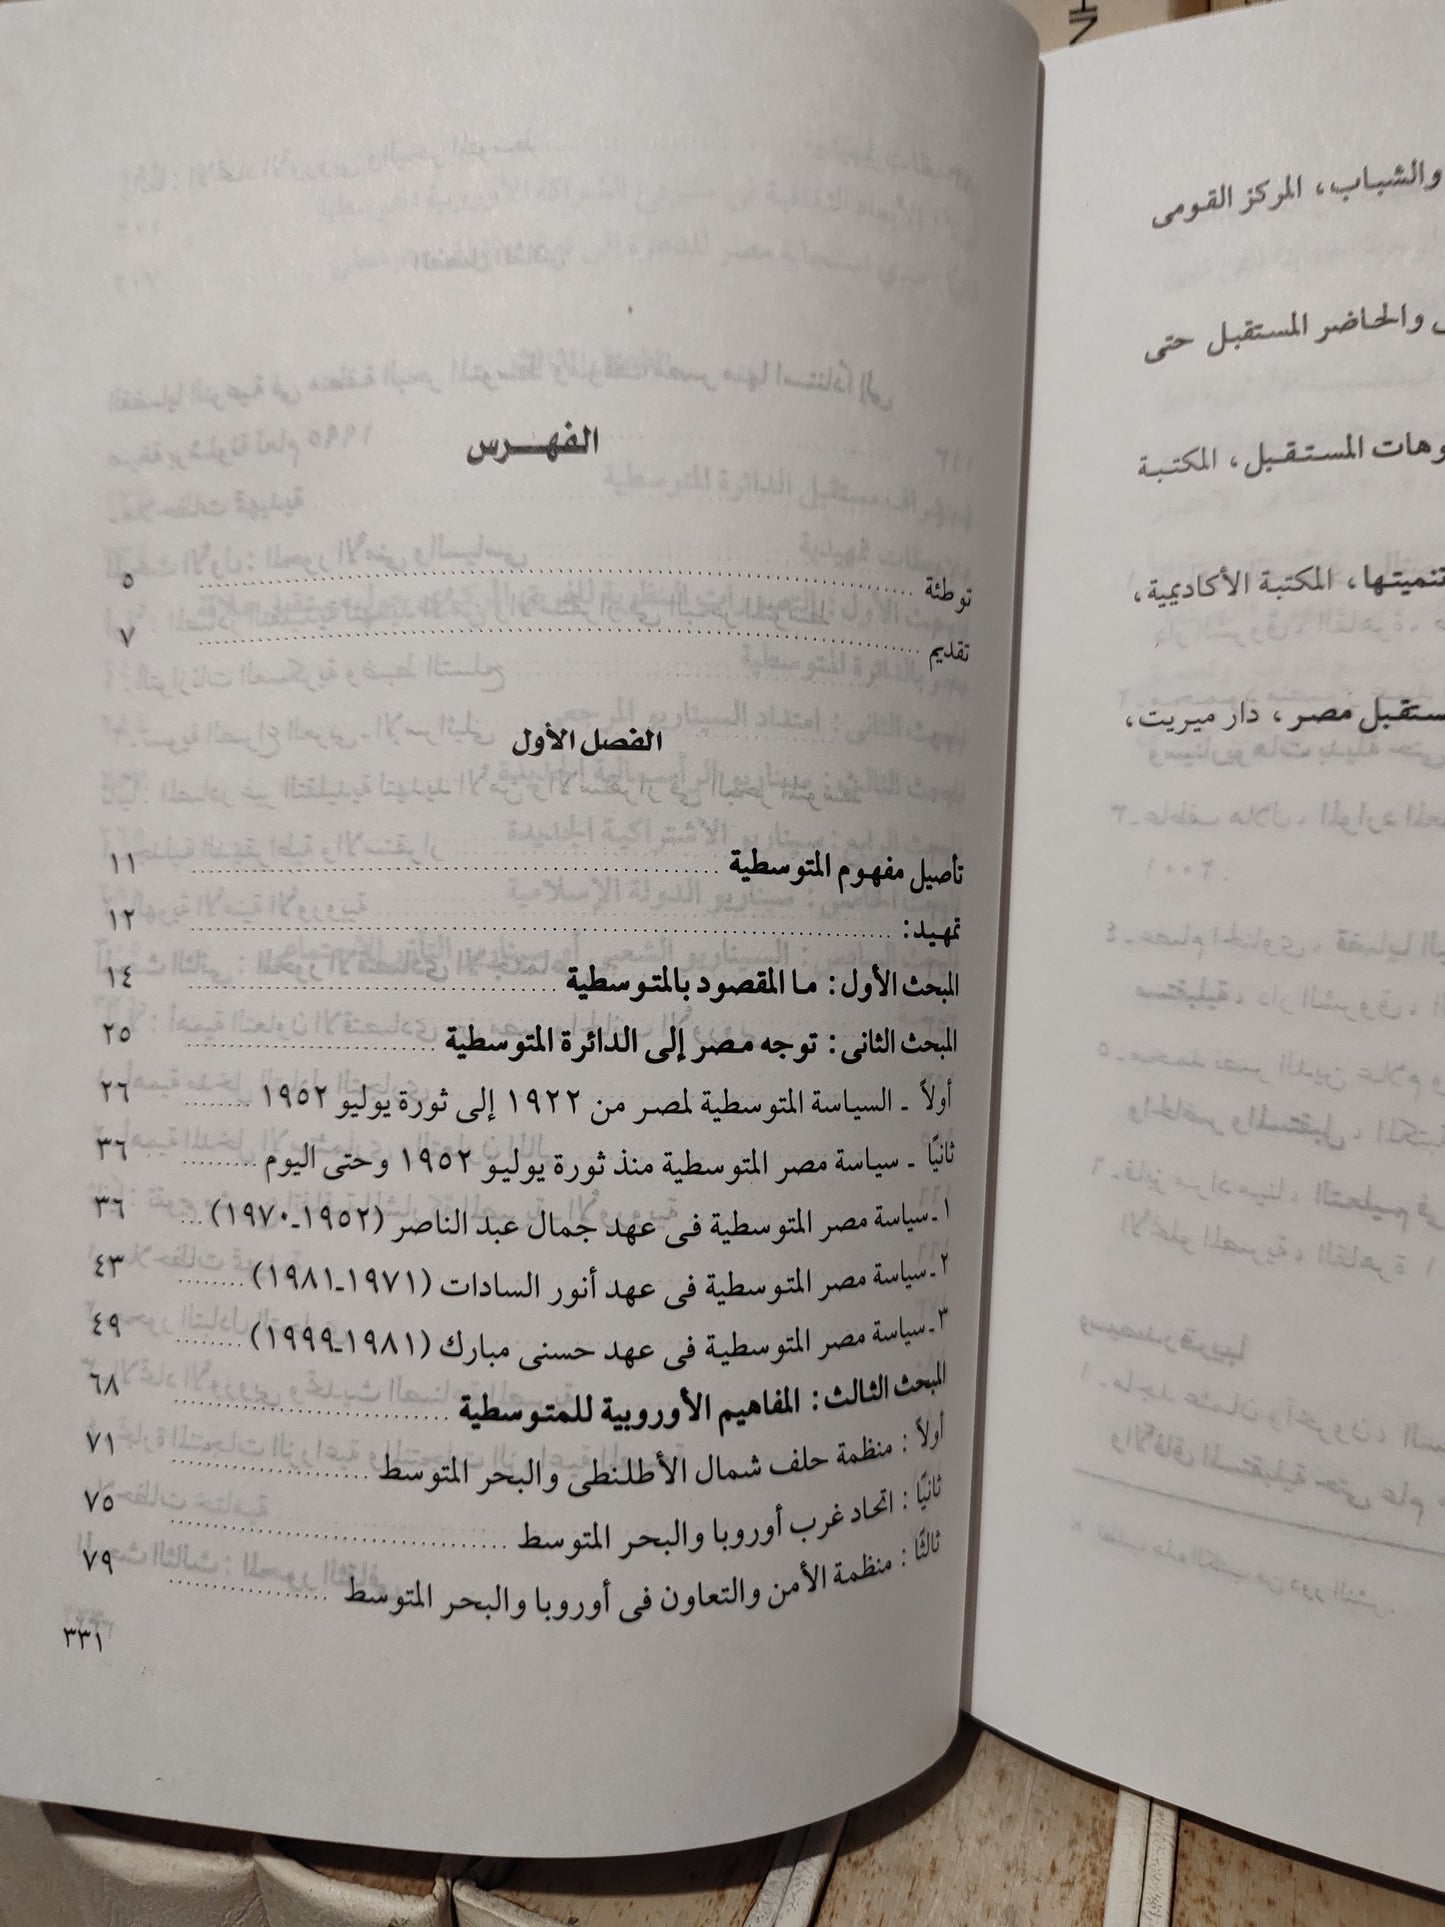 والشباب، المركز القومى
والحاضر المستقبل حتى
المستقبل، المكتبة
تنميتها، المكتبة الأكاديمية،
مصر، دار ميريت،
الفهرس
توطئة ..... ٥
تقديم ..... ٧
الفصل الأول
تأصيل مفهوم المتوسطية ..... ١١
تمهيد: ..... ١٢
المبحث الأول: ما المقصود بالمتوسطية ..... ١٤
المبحث الثانى: توجه مصر إلى الدائرة المتوسطية ..... ٢٥
أولاً ـ السياسة المتوسطية لمصر من ١٩٢٢ إلى ثورة يوليو ١٩٥٢ ..... ٢٦
ثانيًا ـ سياسة مصر المتوسطية منذ ثورة يوليو ١٩٥٢ وحتى اليوم ..... ٣٦
١ـ سياسة مصر المتوسطية فى عهد جمال عبد الناصر (١٩٥٢ـ١٩٧٠) ..... ٣٦
٢ـ سياسة مصر المتوسطية فى عهد أنور السادات (١٩٧١ـ١٩٨١) ..... ٤٣
٣ـ سياسة مصر المتوسطية فى عهد حسنى مبارك (١٩٨١ـ١٩٩٩) ..... ٤٩
المبحث الثالث: المفاهيم الأوروبية للمتوسطية ..... ٦٨
أولاً: منظمة حلف شمال الأطلنطى والبحر المتوسط ..... ٧١
ثانيًا: اتحاد غرب أوروبا والبحر المتوسط ..... ٧٥
ثالثًا: منظمة الأمن والتعاون فى أوروبا والبحر المتوسط ..... ٧٩
٣٣١